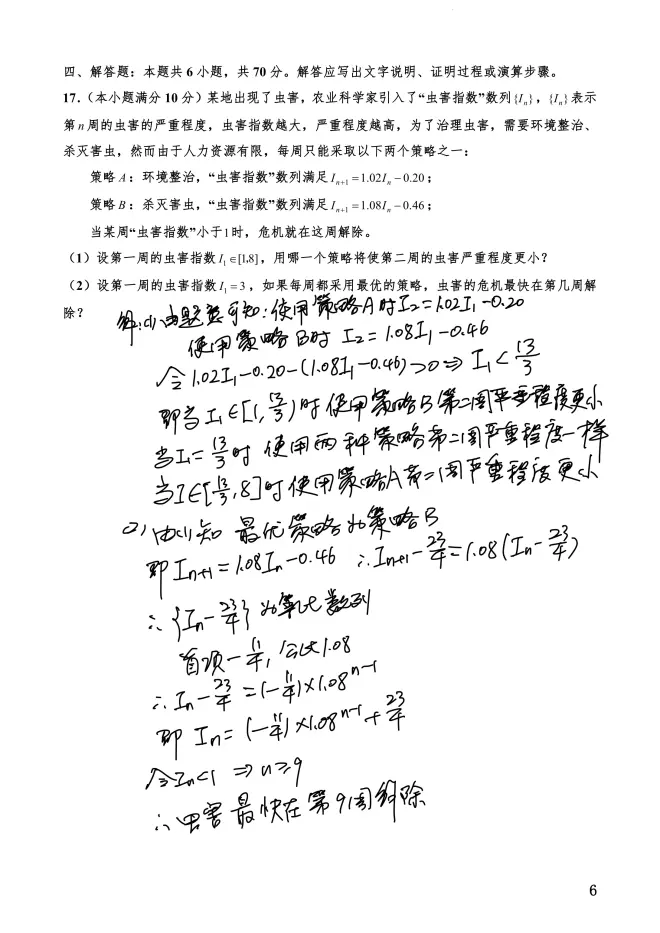 四、解答题：本题共 6 小题，共 70 分。解答应写出文字说明、证明过程或演算步骤。
17.（本小题满分 10 分）某地出现了虫害，农业科学家引入了“虫害指数”数列{Iₙ}，{Iₙ}表示
第 n 周的虫害的严重程度，虫害指数越大，严重程度越高，为了治理虫害，需要环境整治、
杀灭害虫，然而由于人力资源有限，每周只能采取以下两个策略之一：
策略 A：环境整治，“虫害指数”数列满足 Iₙ₊₁ =1.02Iₙ－0.20；
策略 B：杀灭害虫，“虫害指数”数列满足 Iₙ₊₁ =1.08Iₙ－0.46；
当某周“虫害指数”小于1时，危机就在这周解除。
（1）设第一周的虫害指数 I₁∈[1,8]，用哪一个策略将使第二周的虫害严重程度更小？
（2）设第一周的虫害指数 I₁=3，如果每周都采用最优的策略，虫害的危机最快在第几周解
除？
解:(1) 由题意可知:使用策略A时I₂=1.02I₁-0.20
使用策略B时 I₂=1.08I₁-0.46
令1.02I₁-0.20-(1.08I₁-0.46)>0⇒ I₁<13/3
即当I₁∈[1,13/3)时使用策略B第二周严重程度更小
当I₁=13/3时 使用两种策略第二周严重程度一样
当I∈[13/3,8]时使用策略A第二周严重程度更小
(2) 由(1)知 最优策略为策略B
即Iₙ₊₁=1.08Iₙ-0.46 ∴Iₙ₊₁-23/4=1.08(Iₙ-23/4)
∴{Iₙ-23/4}为等比数列
首项-11/4,公比1.08
∴Iₙ-23/4=(-11/4)×1.08ⁿ⁻¹
即 Iₙ=(-11/4)×1.08ⁿ⁻¹+23/4
令Iₙ<1 ⇒n≥9
∴虫害最快在第9周解除
6